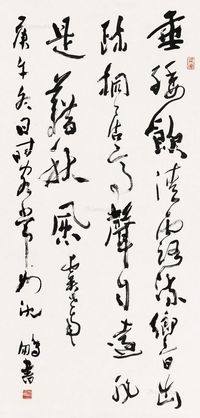 垂緌飲清露流響出
疏桐居高聲自遠非
是藉秋風虞世南
庚午冬日時客常州沈鵬書